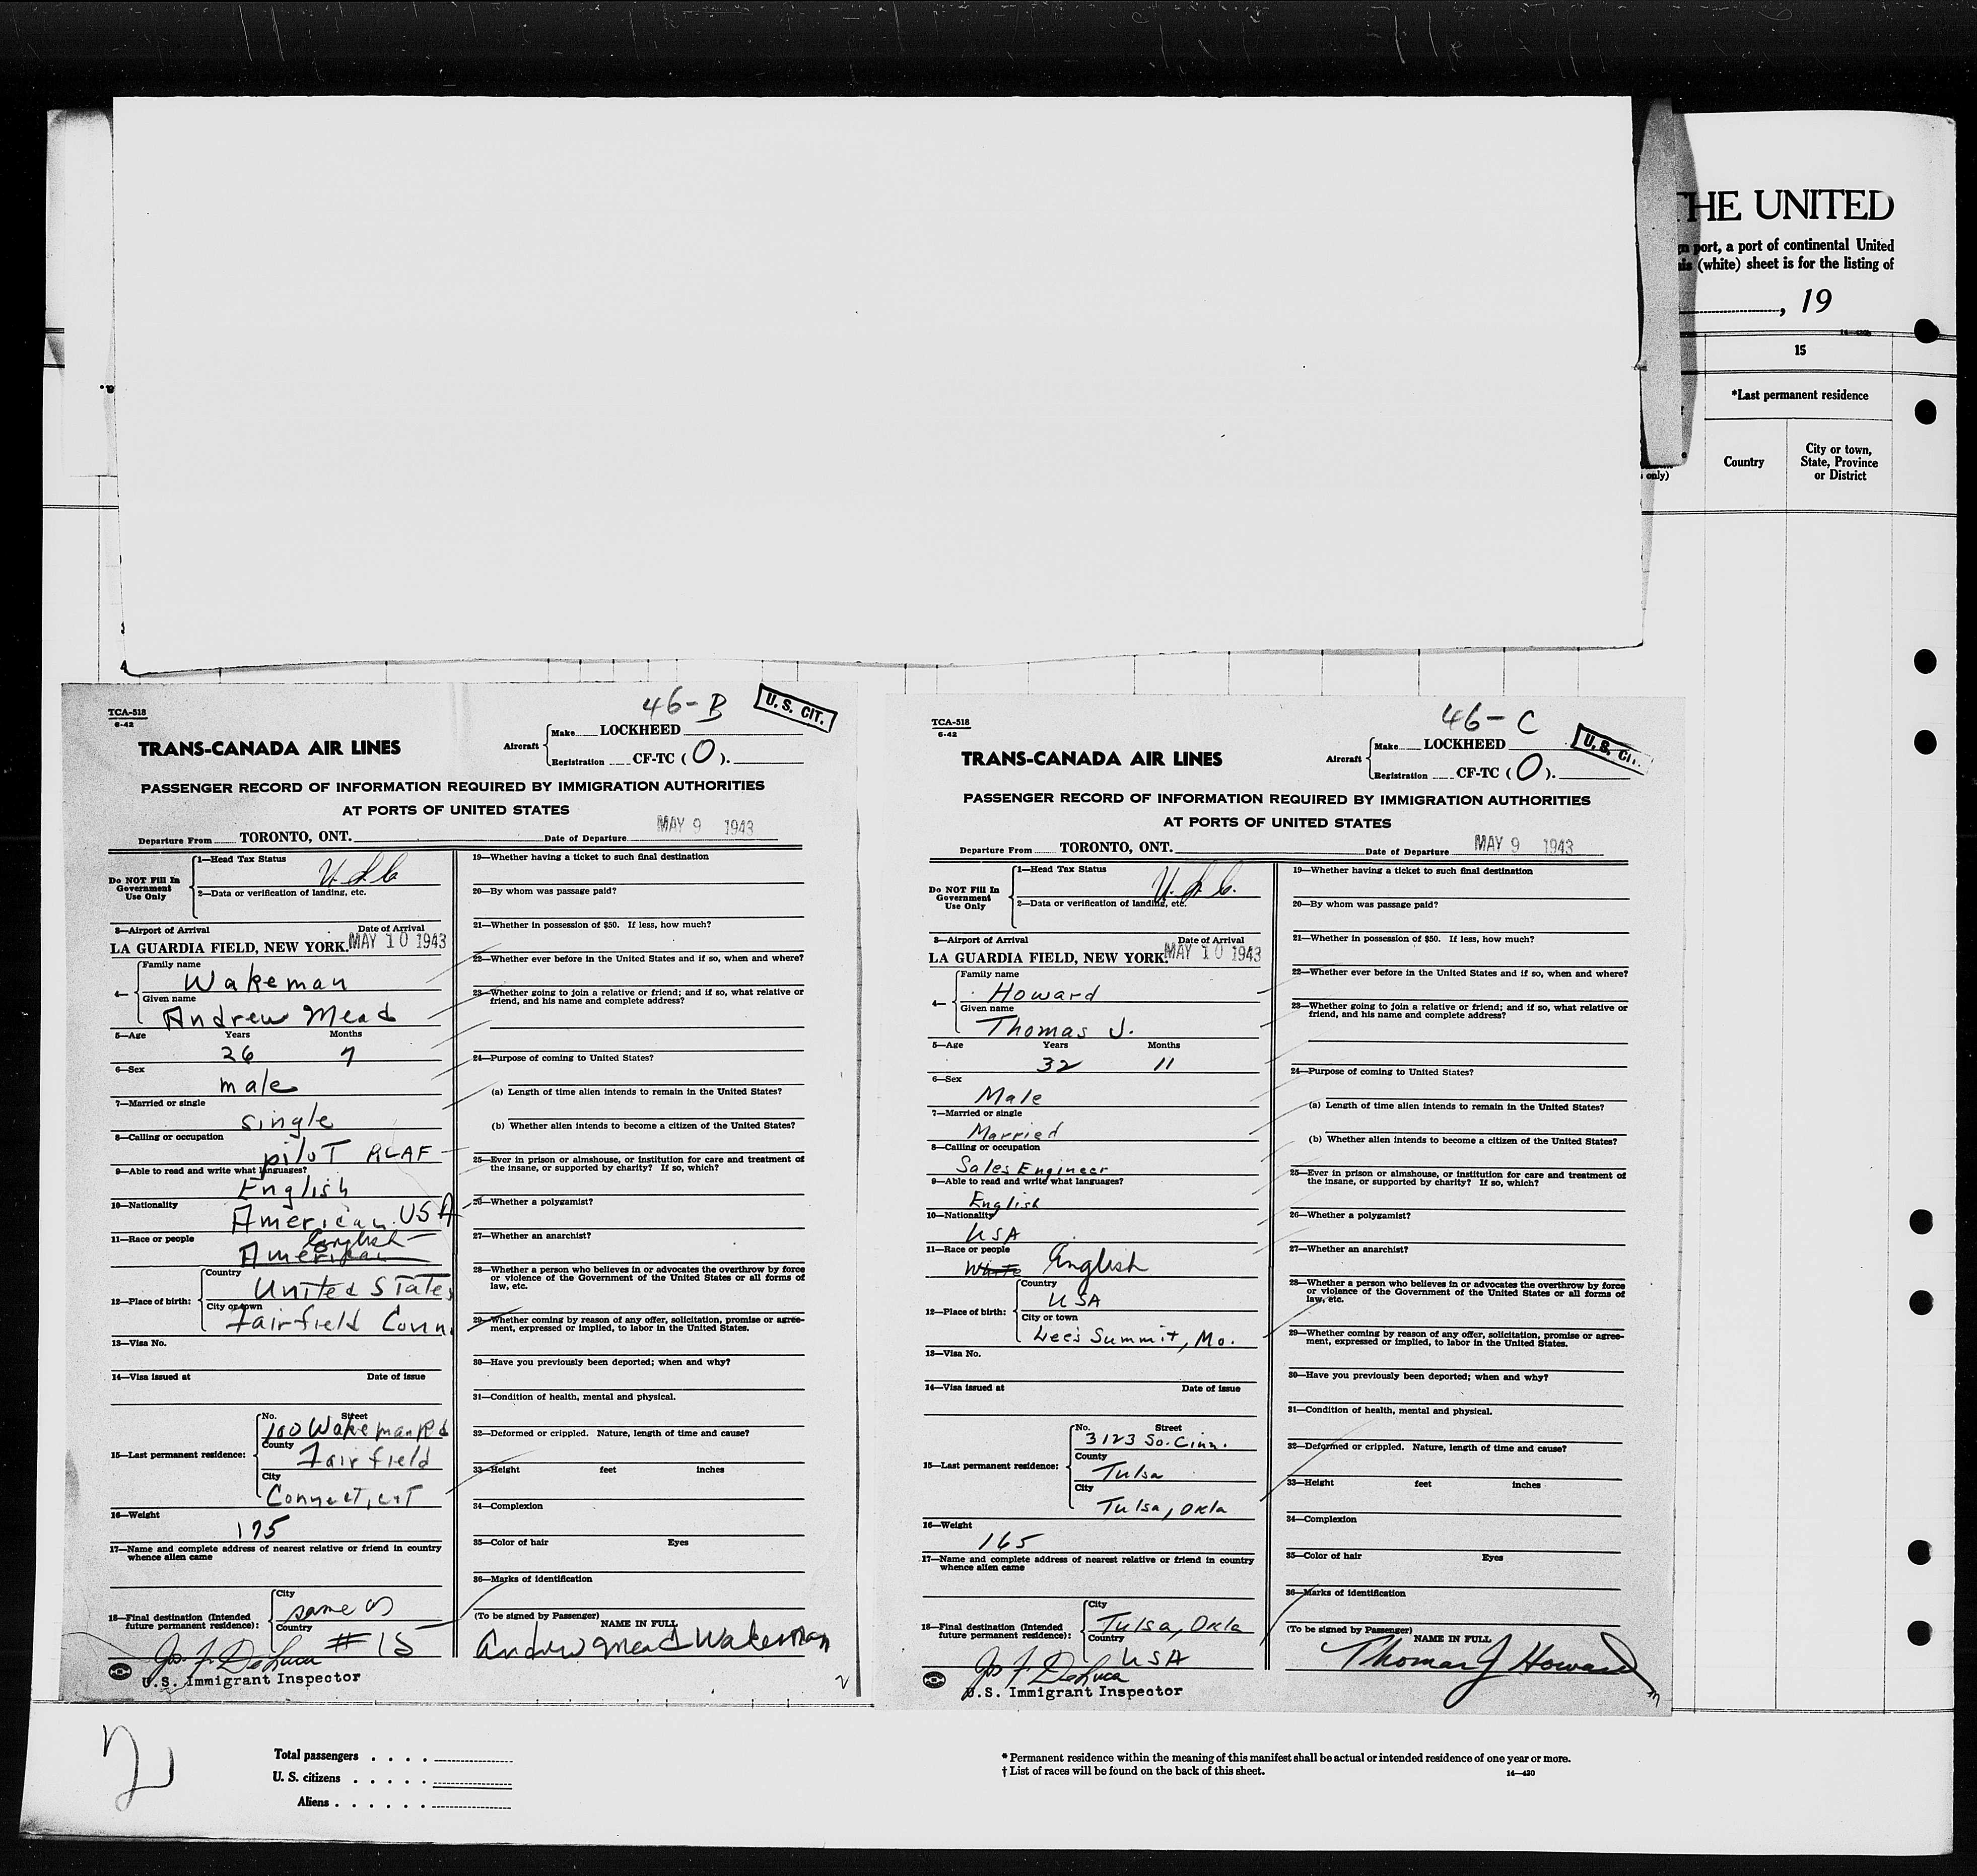 THE UNITED
port, a port of continental United
(white) sheet is for the listing of
, 19
15
*Last permanent residence
only)
Country
City or town,
State, Province
or District
46-B
U. S. CIT.
TCA-518
6-42
TRANS-CANADA AIR LINES
Aircraft
Make LOCKHEED
Registration CF-TC (O).
PASSENGER RECORD OF INFORMATION REQUIRED BY IMMIGRATION AUTHORITIES
AT PORTS OF UNITED STATES
Departure From TORONTO, ONT. Date of Departure MAY 9 1943
Do NOT Fill In
Government
Use Only
1—Head Tax Status
2—Data or verification of landing, etc.
3—Airport of Arrival Date of Arrival
LA GUARDIA FIELD, NEW YORK. MAY 10 1943
4— Family name
Wakeman
Given name
Andrew Mead
5—Age Years Months
26 7
6—Sex
male
7—Married or single
single
8—Calling or occupation
pilot RCAF
9—Able to read and write what languages?
English
10—Nationality
American USA
11—Race or people
English
American
12—Place of birth:
Country
United States
City or town
Fairfield Conn.
13—Visa No.
14—Visa issued at Date of issue
15—Last permanent residence:
No. Street
100 Wakeman Rd
County
Fairfield
City
Connecticut
16—Weight
175
17—Name and complete address of nearest relative or friend in country
whence alien came
18—Final destination (Intended
future permanent residence):
City
same as
Country
#15
Jos. F. DeLuca
U.S. Immigrant Inspector
19—Whether having a ticket to such final destination
20—By whom was passage paid?
21—Whether in possession of $50. If less, how much?
22—Whether ever before in the United States and if so, when and where?
23—Whether going to join a relative or friend; and if so, what relative or
friend, and his name and complete address?
24—Purpose of coming to United States?
(a) Length of time alien intends to remain in the United States?
(b) Whether alien intends to become a citizen of the United States?
25—Ever in prison or almshouse, or institution for care and treatment of
the insane, or supported by charity? If so, which?
26—Whether a polygamist?
27—Whether an anarchist?
28—Whether a person who believes in or advocates the overthrow by force
or violence of the Government of the United States or all forms of
law, etc.
29—Whether coming by reason of any offer, solicitation, promise or agree-
ment, expressed or implied, to labor in the United States.
30—Have you previously been deported; when and why?
31—Condition of health, mental and physical.
32—Deformed or crippled. Nature, length of time and cause?
33—Height feet inches
34—Complexion
35—Color of hair Eyes
36—Marks of identification
(To be signed by Passenger)
NAME IN FULL
Andrew Mead Wakeman
46-C
U. S. CIT.
TCA-518
6-42
TRANS-CANADA AIR LINES
Aircraft
Make LOCKHEED
Registration CF-TC (O).
PASSENGER RECORD OF INFORMATION REQUIRED BY IMMIGRATION AUTHORITIES
AT PORTS OF UNITED STATES
Departure From TORONTO, ONT. Date of Departure MAY 9 1943
Do NOT Fill In
Government
Use Only
1—Head Tax Status
2—Data or verification of landing, etc.
3—Airport of Arrival Date of Arrival
LA GUARDIA FIELD, NEW YORK. MAY 10 1943
4— Family name
Howard
Given name
Thomas J.
5—Age Years Months
32 11
6—Sex
Male
7—Married or single
Married
8—Calling or occupation
Sales Engineer
9—Able to read and write what languages?
English
10—Nationality
USA
11—Race or people
White English
12—Place of birth:
Country
USA
City or town
Lee's Summit, Mo.
13—Visa No.
14—Visa issued at Date of issue
15—Last permanent residence:
No. Street
3123 So. Cinn.
County
Tulsa
City
Tulsa, Okla
16—Weight
165
17—Name and complete address of nearest relative or friend in country
whence alien came
18—Final destination (Intended
future permanent residence):
City
Tulsa, Okla
Country
USA
Jos F. DeLuca
U.S. Immigrant Inspector
19—Whether having a ticket to such final destination
20—By whom was passage paid?
21—Whether in possession of $50. If less, how much?
22—Whether ever before in the United States and if so, when and where?
23—Whether going to join a relative or friend; and if so, what relative or
friend, and his name and complete address?
24—Purpose of coming to United States?
(a) Length of time alien intends to remain in the United States?
(b) Whether alien intends to become a citizen of the United States?
25—Ever in prison or almshouse, or institution for care and treatment of
the insane, or supported by charity? If so, which?
26—Whether a polygamist?
27—Whether an anarchist?
28—Whether a person who believes in or advocates the overthrow by force
or violence of the Government of the United States or all forms of
law, etc.
29—Whether coming by reason of any offer, solicitation, promise or agree-
ment, expressed or implied, to labor in the United States.
30—Have you previously been deported; when and why?
31—Condition of health, mental and physical.
32—Deformed or crippled. Nature, length of time and cause?
33—Height feet inches
34—Complexion
35—Color of hair Eyes
36—Marks of identification
(To be signed by Passenger)
NAME IN FULL
Thomas J Howard
Total passengers
U. S. citizens
Aliens
* Permanent residence within the meaning of this manifest shall be actual or intended residence of one year or more.
† List of races will be found on the back of this sheet.
14—430